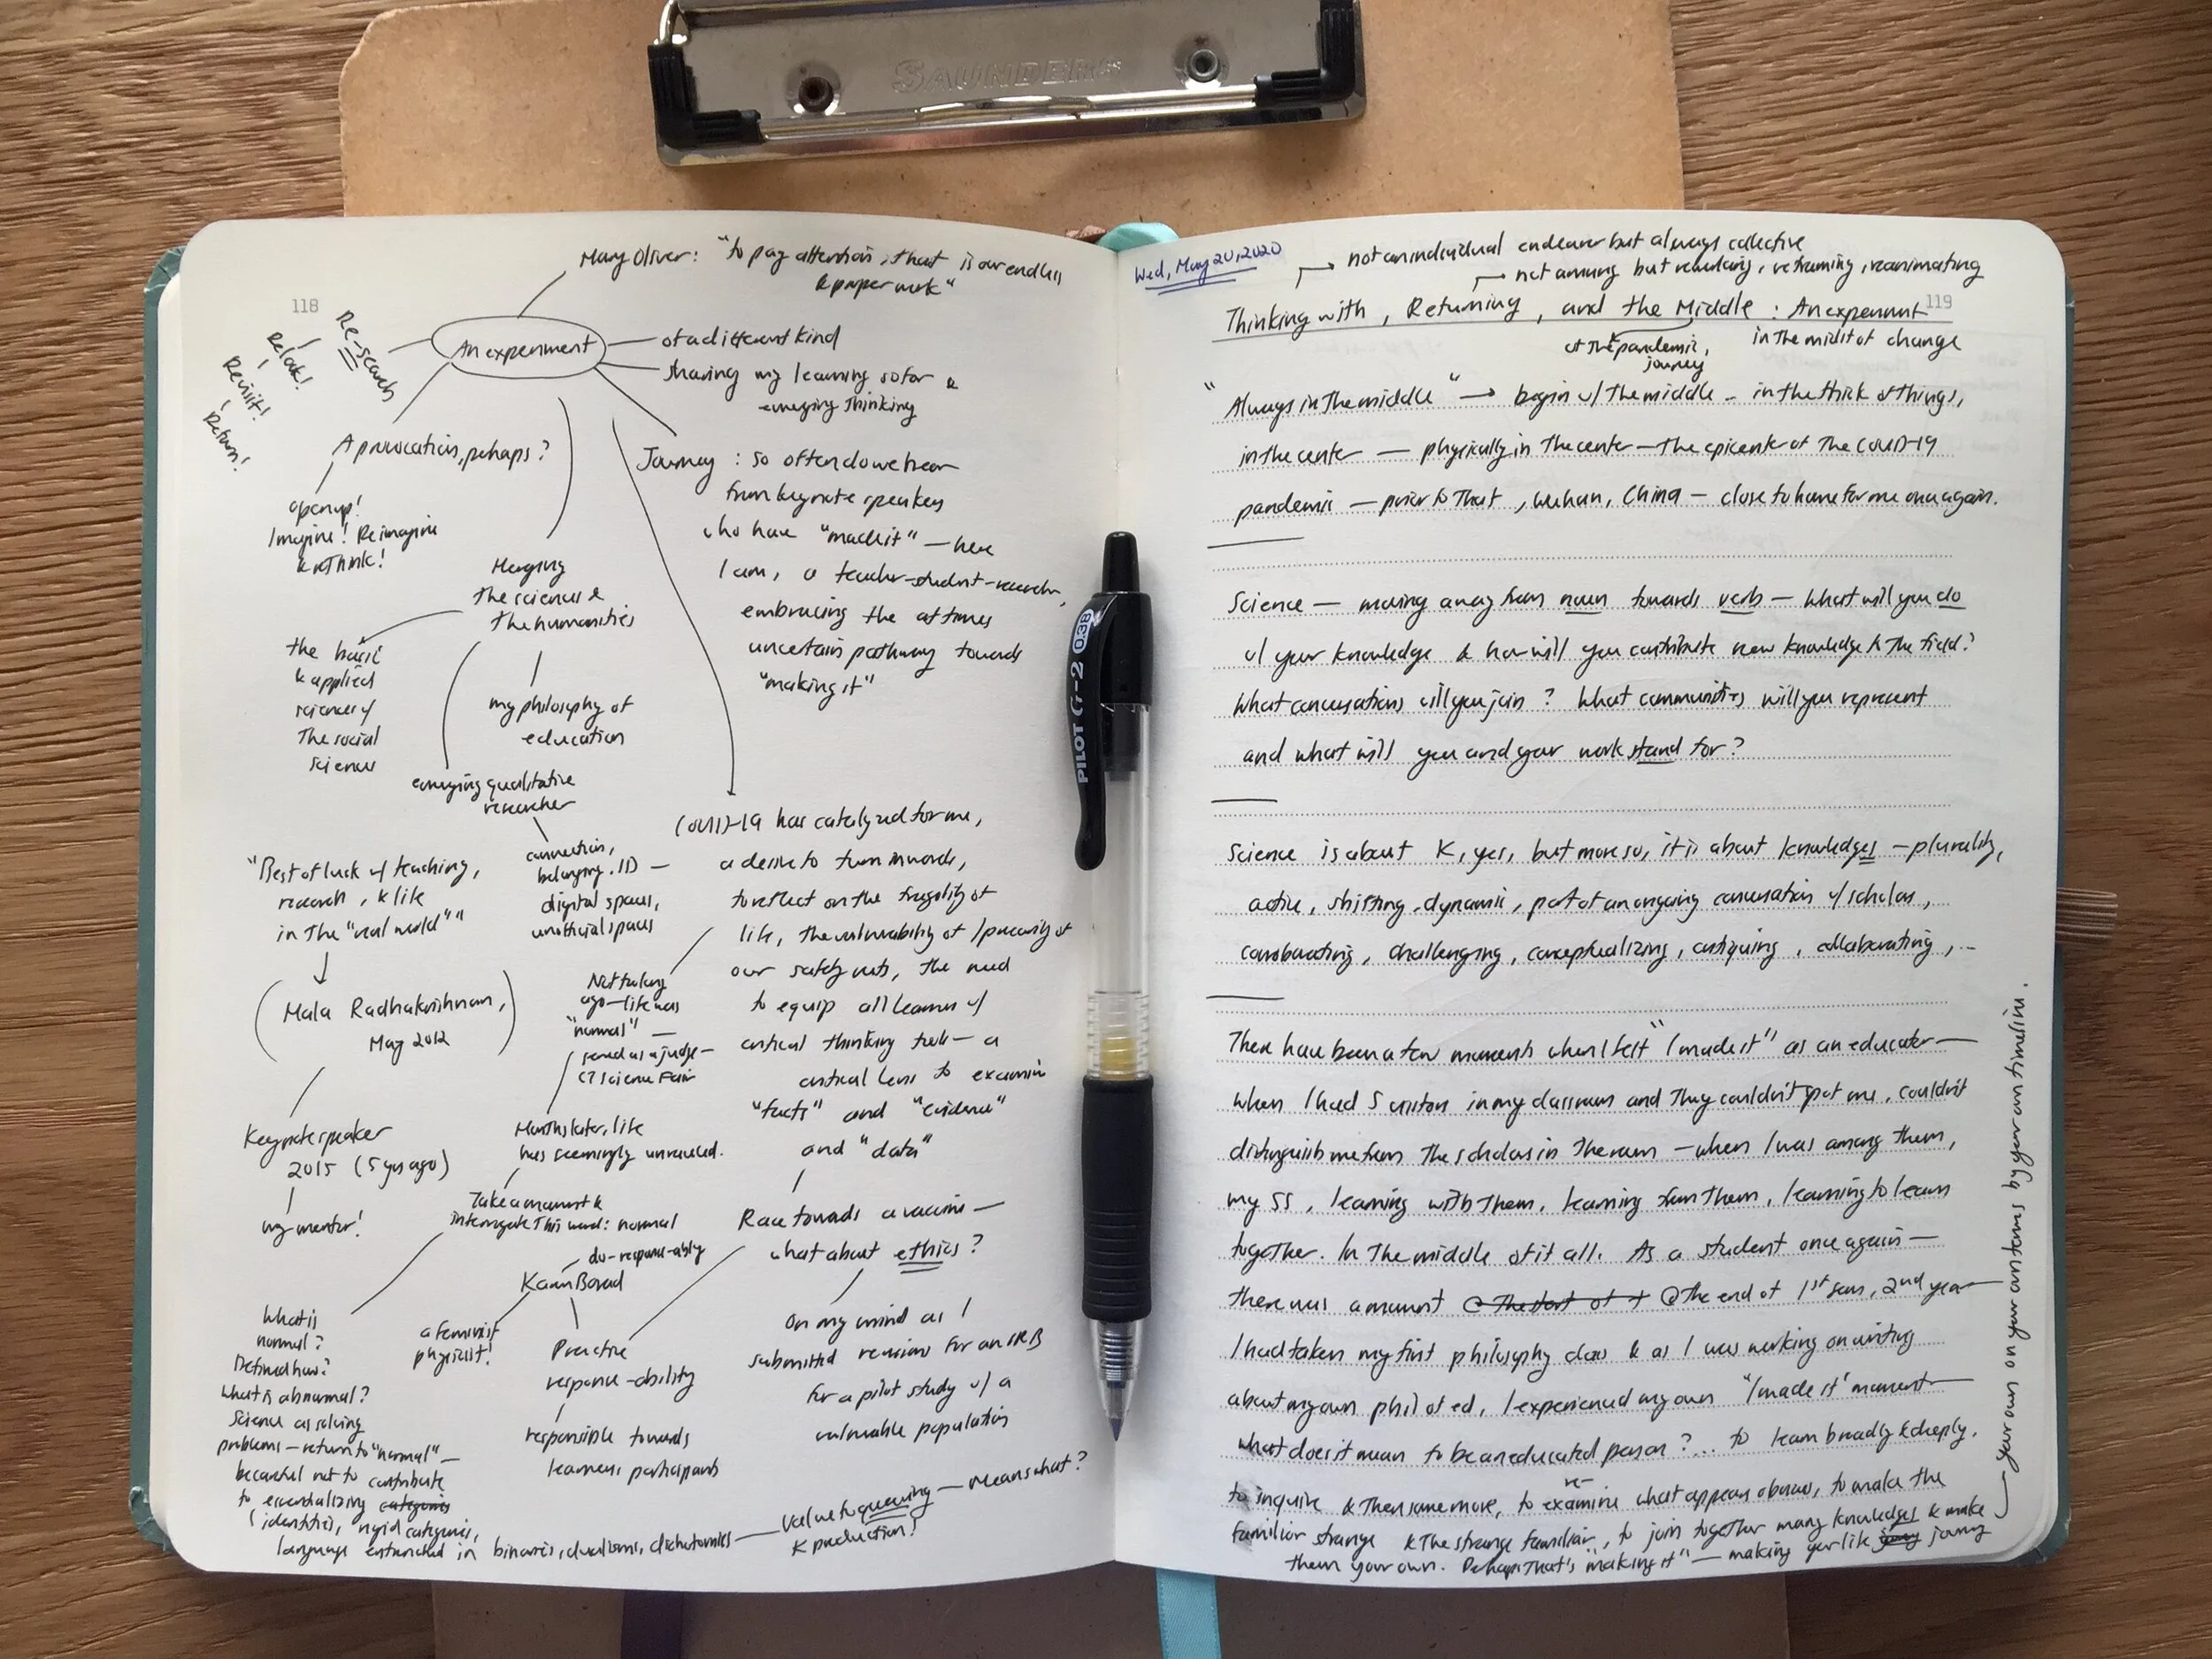 SAUNDERS
118
Mary Oliver: "to pay attention, that is our endless
& proper work"
An experiment
of a different kind
sharing my learning so far &
emerging thinking
Re-search
Relook!
Revisit!
Return!
A provocation, perhaps?
open up!
Imagine! Reimagine
& rethink!
Journey: so often do we hear
from keynote speakers
who have "made it" — here
I am, a teacher-student-researcher,
embracing the at times
uncertain pathway towards
"making it"
Merging
the sciences &
the humanities
the basic
& applied
sciences w/
the social
sciences
my philosophy of
education
emerging qualitative
researcher
connection,
belonging, ID —
digital spaces,
unofficial spaces
"Best of luck w/ teaching,
research, & life
in the "real world""
(Mala Radhakrishnan,
May 2012)
Keynote speaker
2015 (5 yrs ago)
my mentor!
COVID-19 has catalyzed for me,
a desire to turn inwards,
to reflect on the fragility of
life, the vulnerability of / precarity of
our safety nets, the need
to equip all learners w/
critical thinking tools — a
critical lens to examine
"facts" and "evidence"
and "data"
Not too long
ago — life was
"normal" —
served as a judge —
CT Science Fair
Months later, life
has seemingly unraveled.
Take a moment &
interrogate this word: normal
Race towards a vaccine —
what about ethics?
On my mind as I
submitted revisions for an IRB
for a pilot study w/ a
vulnerable population
do-respons-ably
Karen Barad
a feminist
physicist!
Practice
response-ability
responsible towards
learners, participants
What is
normal?
Defined how?
What is abnormal?
Science as solving
problems — return to "normal" —
be careful not to contribute
to essentializing categories
identities, rigid categories,
language entrenched in binaries, dualisms, dichotomies —
value to querying — Means what?
K production!
PILOT G-2 0.38
Wed, May 20, 2020
not an individual endeavor but always collective
not arriving but revisiting, reframing, reanimating
119
Thinking with, Returning, and the Middle: An experiment
of the pandemic,
journey
in the midst of change
"Always in the middle" → begin w/ the middle — in the thick of things,
in the center — physically in the center — the epicenter of the COVID-19
pandemic — prior to that, Wuhan, China — close to home for me once again.
Science — moving away from noun towards verb — What will you do
w/ your knowledge & how will you contribute new knowledge to the field?
What conversations will you join? What communities will you represent
and what will you and your work stand for?
Science is about K, yes, but more so, it is about knowledges — plurality,
active, shifting, dynamic, part of an ongoing conversation w/ scholars,
corroborating, challenging, conceptualizing, critiquing, collaborating, ...
There have been a few moments when I felt "I made it" as an educator —
when I had 5 visitors in my classroom and they couldn't spot me, couldn't
distinguish me from the scholars in the room — when I was among them,
my SS, learning with them, learning from them, learning to learn
together. In the middle of it all. As a student once again —
there was a moment @ the start of @ the end of 1st sem, 2nd year —
I had taken my first philosophy class & as I was working on writing
about my own phil of ed, I experienced my own "I made it" moment —
What does it mean to be an educated person? ... to learn broadly & deeply,
to inquire & then some more, to re-examine what appears obvious, to make the
familiar strange & the strange familiar, to join together many knowledges & make
them your own. Perhaps that's "making it" — making your life journey
your own on your own terms by your own timeline.